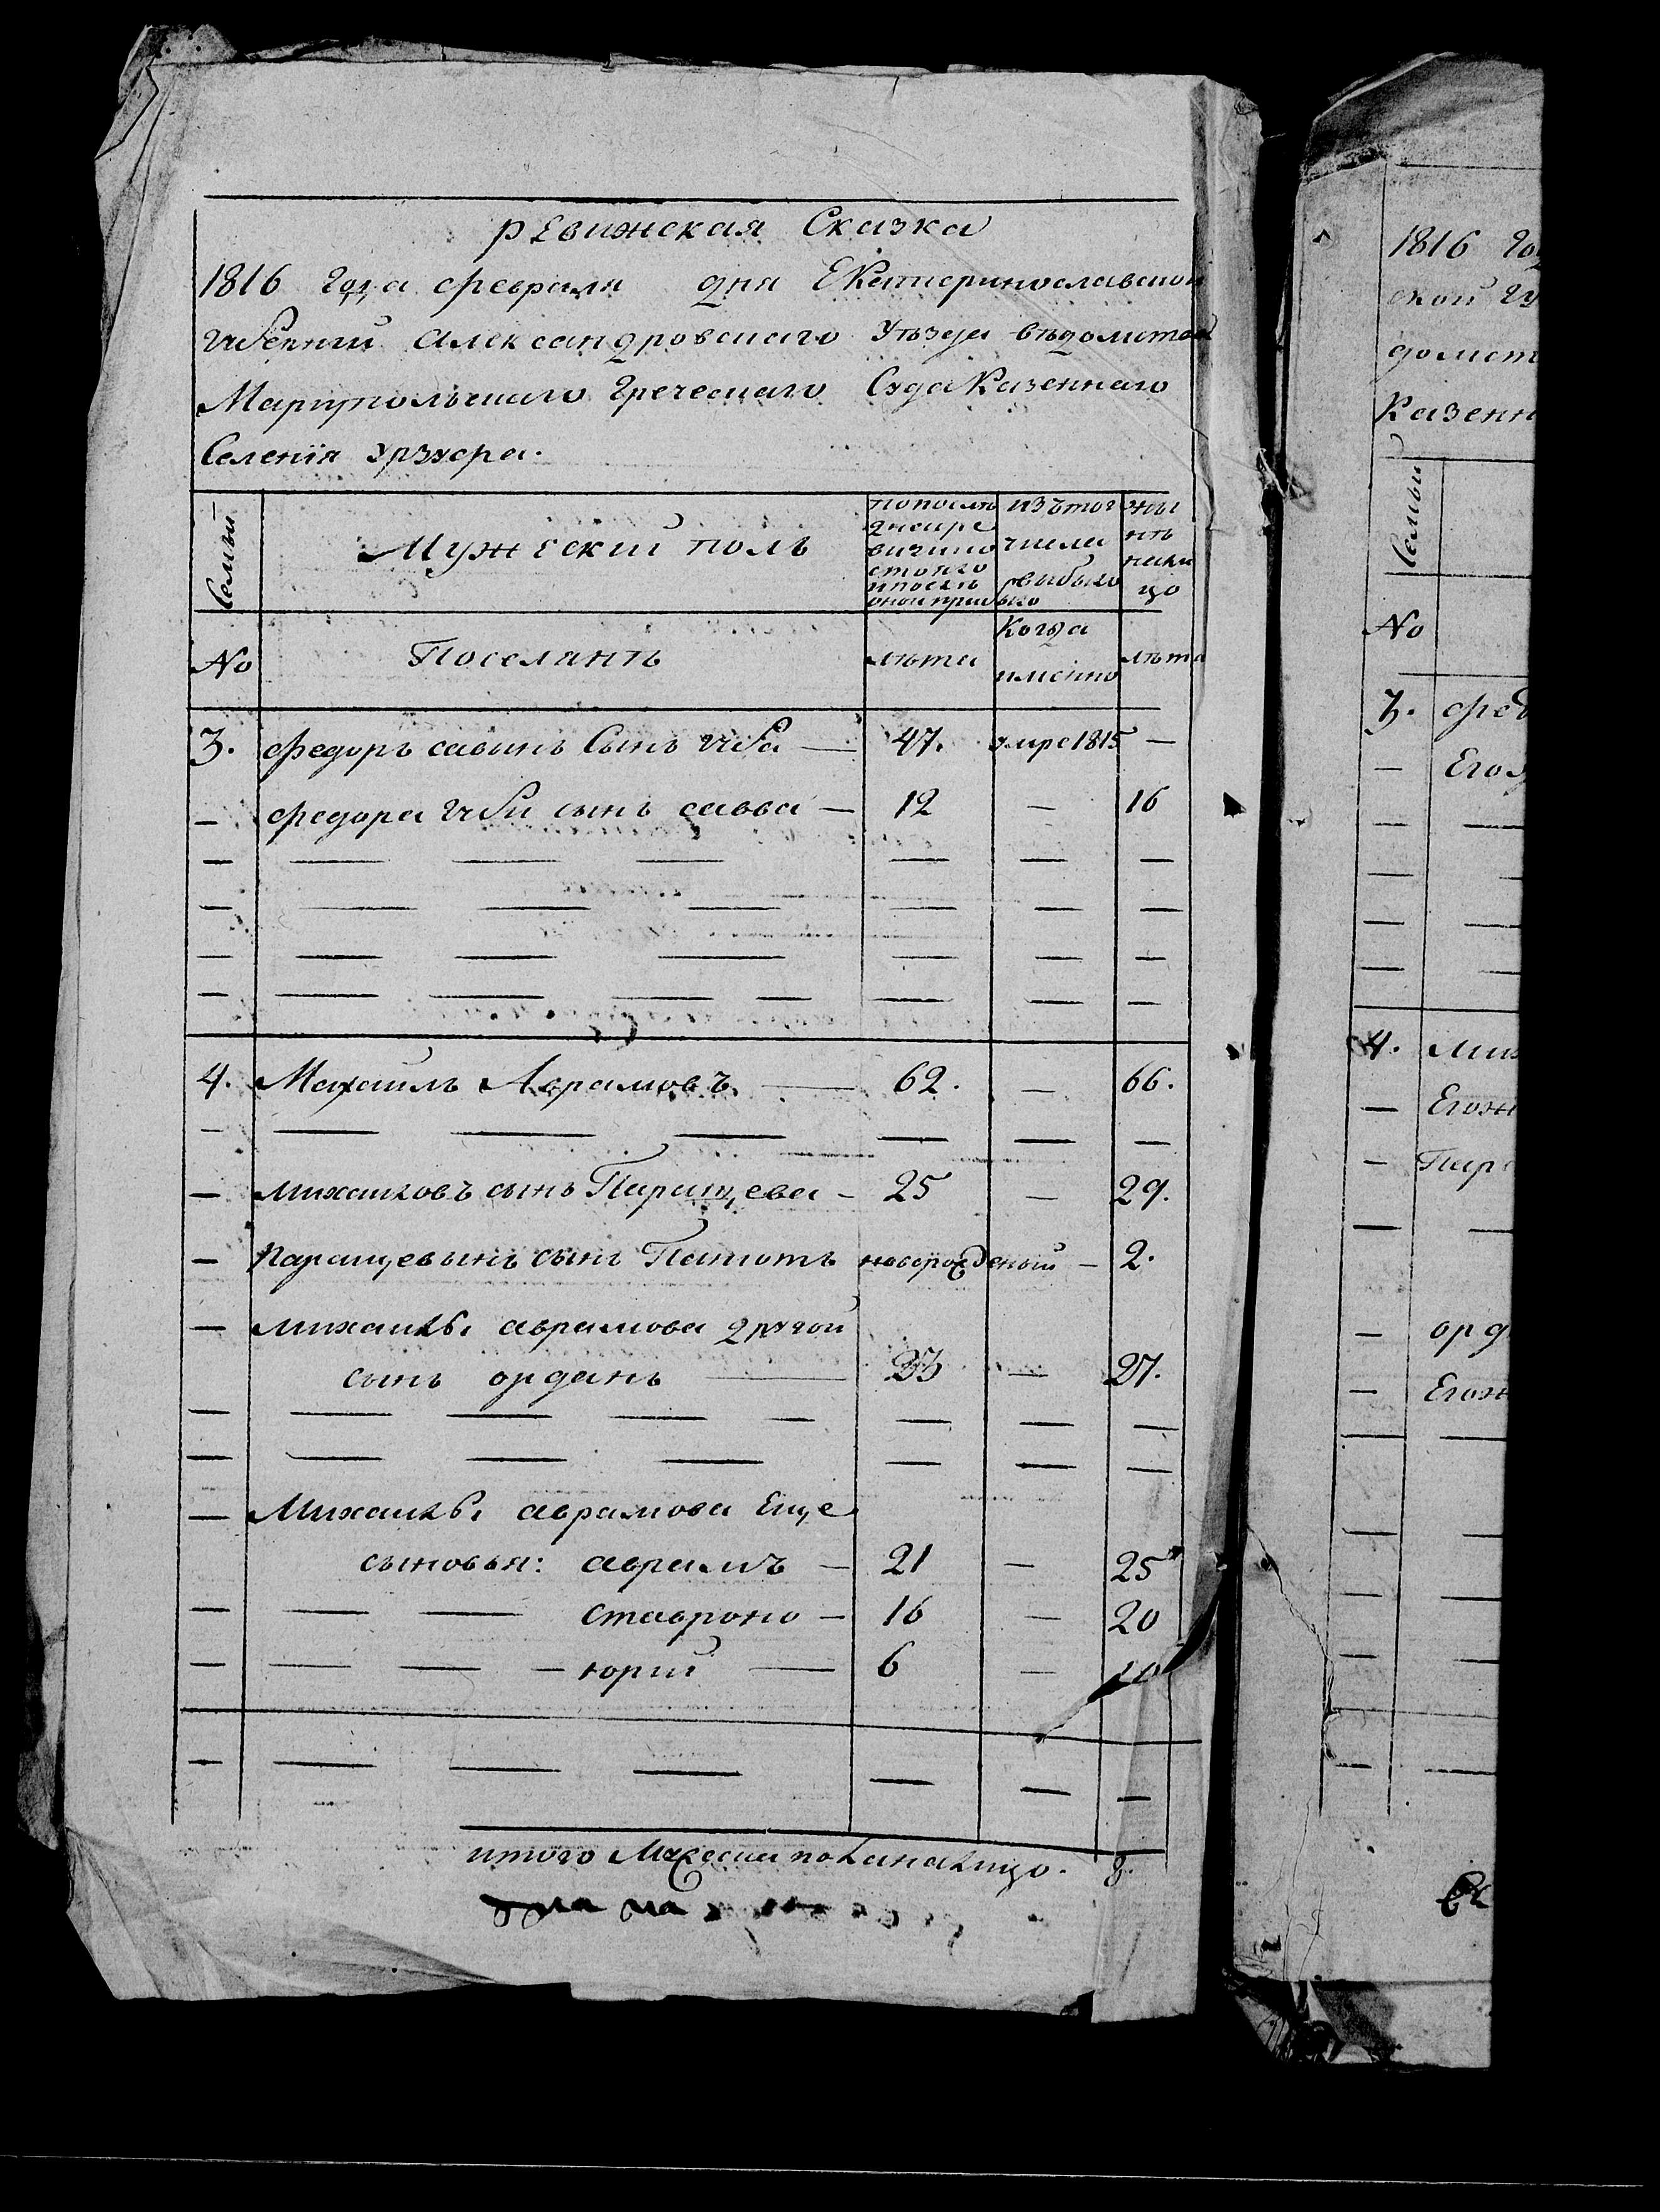 ревижская Сказка
1816 года февраля дня Екатеринославской
губернии Александровскаго Уъзда въдомства
Мариупольскаго Греческаго Суда Казеннаго
Селенія Урзуфа.
Семьи
Мужеский полъ
по послъ
дней ре
визии
состояло
и послъ
оной прибыло
изътого
числа
выбыло
ны
нъ
на ли
цо
No
Поселянъ
лъта
Когда
именно
лъта
3. федоръ савинъ Сынъ — 47. умре 1815 —
— федора сынъ савва — 12 — 16
4. Михаилъ Аврамовъ — 62. — 66.
— михаиловъ сынъ Паращева — 25 — 29.
— паращевынъ сынъ новорожденый — 2.
— михаила аврамова другой
сынъ орданъ — 23 — 27.
— Михаила аврамова Еще
сыновья: аврамъ — 21 — 25
— ставроно — 16 — 20
— юрий — 6 — 10
итого Мужеска полана лицо. 8.
1816 год
ской гу
домст
Казенн
Семьи
No
3. фед
— Его
4. мих
— Егож
— Пара
— орд
— Егож